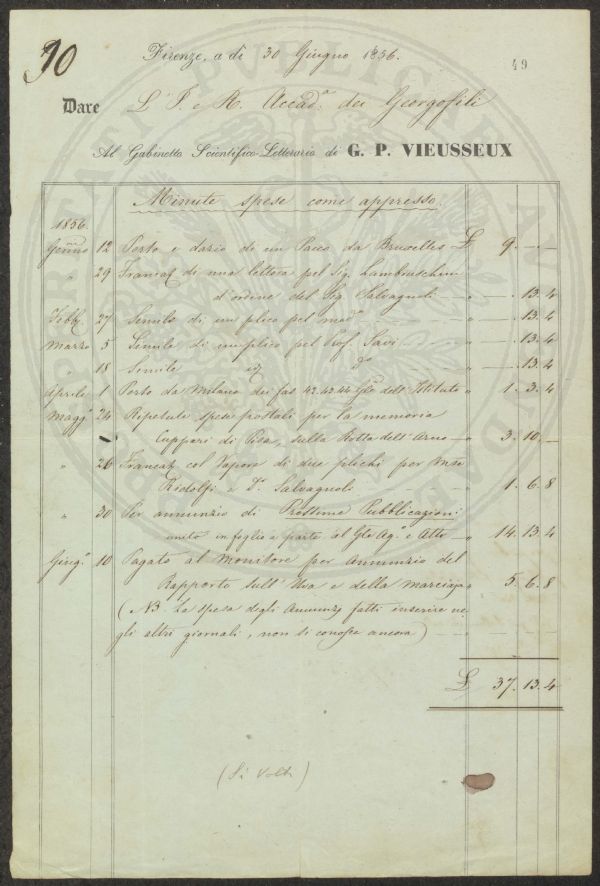 30
49
Firenze, a dì 30 Giugno 1856.
Dare L'I. e R. Accad.ª dei Georgofili
Al Gabinetto Scientifico-Letterario di G. P. VIEUSSEUX
Minute spese come appresso.
1856.
12 Porto e dazio di un Pacco da Bruxelles £ 9. — —
" 29 Francat. di una lettera pel Sig. Lambruschini
d'ordine del Sig. Salvagnoli " — . 13. 4
Febb. 27 Simile di un plico pel " — . 13. 4
Marzo 5 Simile di un plico pel Prof. Savi " — . 13. 4
18 Simile " — . 13. 4
Aprile 1 Porto da Milano dei fas. 42.43.44 Gle dell'Istituto " 1. 3. 4
Magg. 24 Ripetute spese postali per la memoria
Cuppari di Pisa, sulla Rotta dell'Arno " 3. 10. —
" 26 Francat. col Vapore di due plichi per
Ridolfi e Salvagnoli " 1. 6. 8
" 30 Per annunzio di Prossime Pubblicazioni
unito in foglio a parte al Gle Ag.º e Atti " 14. 13. 4
Giug. 10 Pagato al Monitore per Annunzio del
Rapporto sull'Uva e della marciaja " 5. 6. 8
(NB. La spesa degli Annunzj fatti inserire ne
gli altri giornali, non si conosce ancora) " — — —
£ 37. 13. 4
(Si volti)